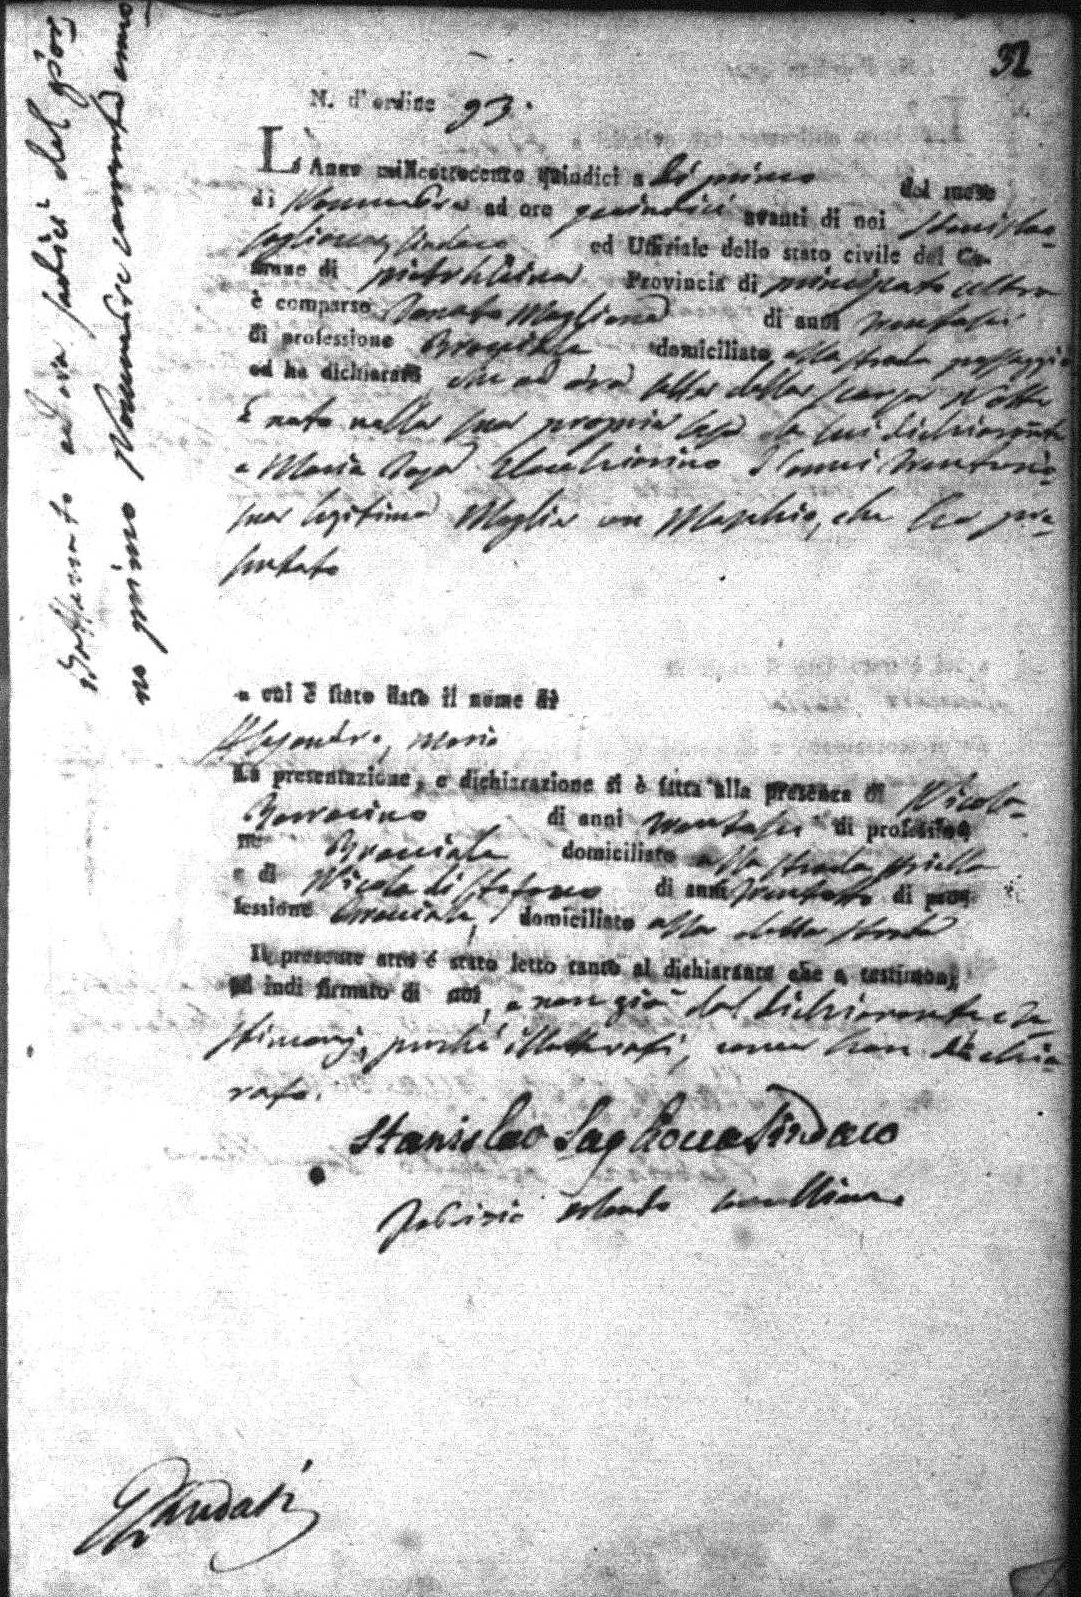 32
N. d'ordine 93.
L'Anno milleottocento quindici a dì primo del mese
di Novembre ad ore quindici avanti di noi Stanislao
Saglioccα Sindaco ed Uffiziale dello stato civile del Co-
mune di Provincia di principato ultra
è comparso Donato Magliano di anni trentasei
di professione Bracciale domiciliato alla strada
ed ha dichiarato che ad ore sette della scorsa Notte
è nato nella sua propria casa da lui dichiarante
e Maria Rosa d'anni
sua legitima Moglie un Maschio, che ha pre-
sentato
a cui è stato dato il nome di
Alesandro, Maria
La presentazione, e dichiarazione si è fatta alla presenza di Nicola
di anni trentasei di professio-
ne Bracciale domiciliato alla strada
e di Nicola di Stefano di anni trentotto di pro-
fessione Bracciale, domiciliato alla detta strada
Il presente atto è stato letto tanto al dichiarante che a testimonj,
ed indi firmato di noi, e non già dal dichiarante e te
stimonj, perché illetterati, come han dichia
rato.
Stanislao Sagliocca Sindaco
Battezzato ad ore sedici del gior
no primo Novembre corrente anno